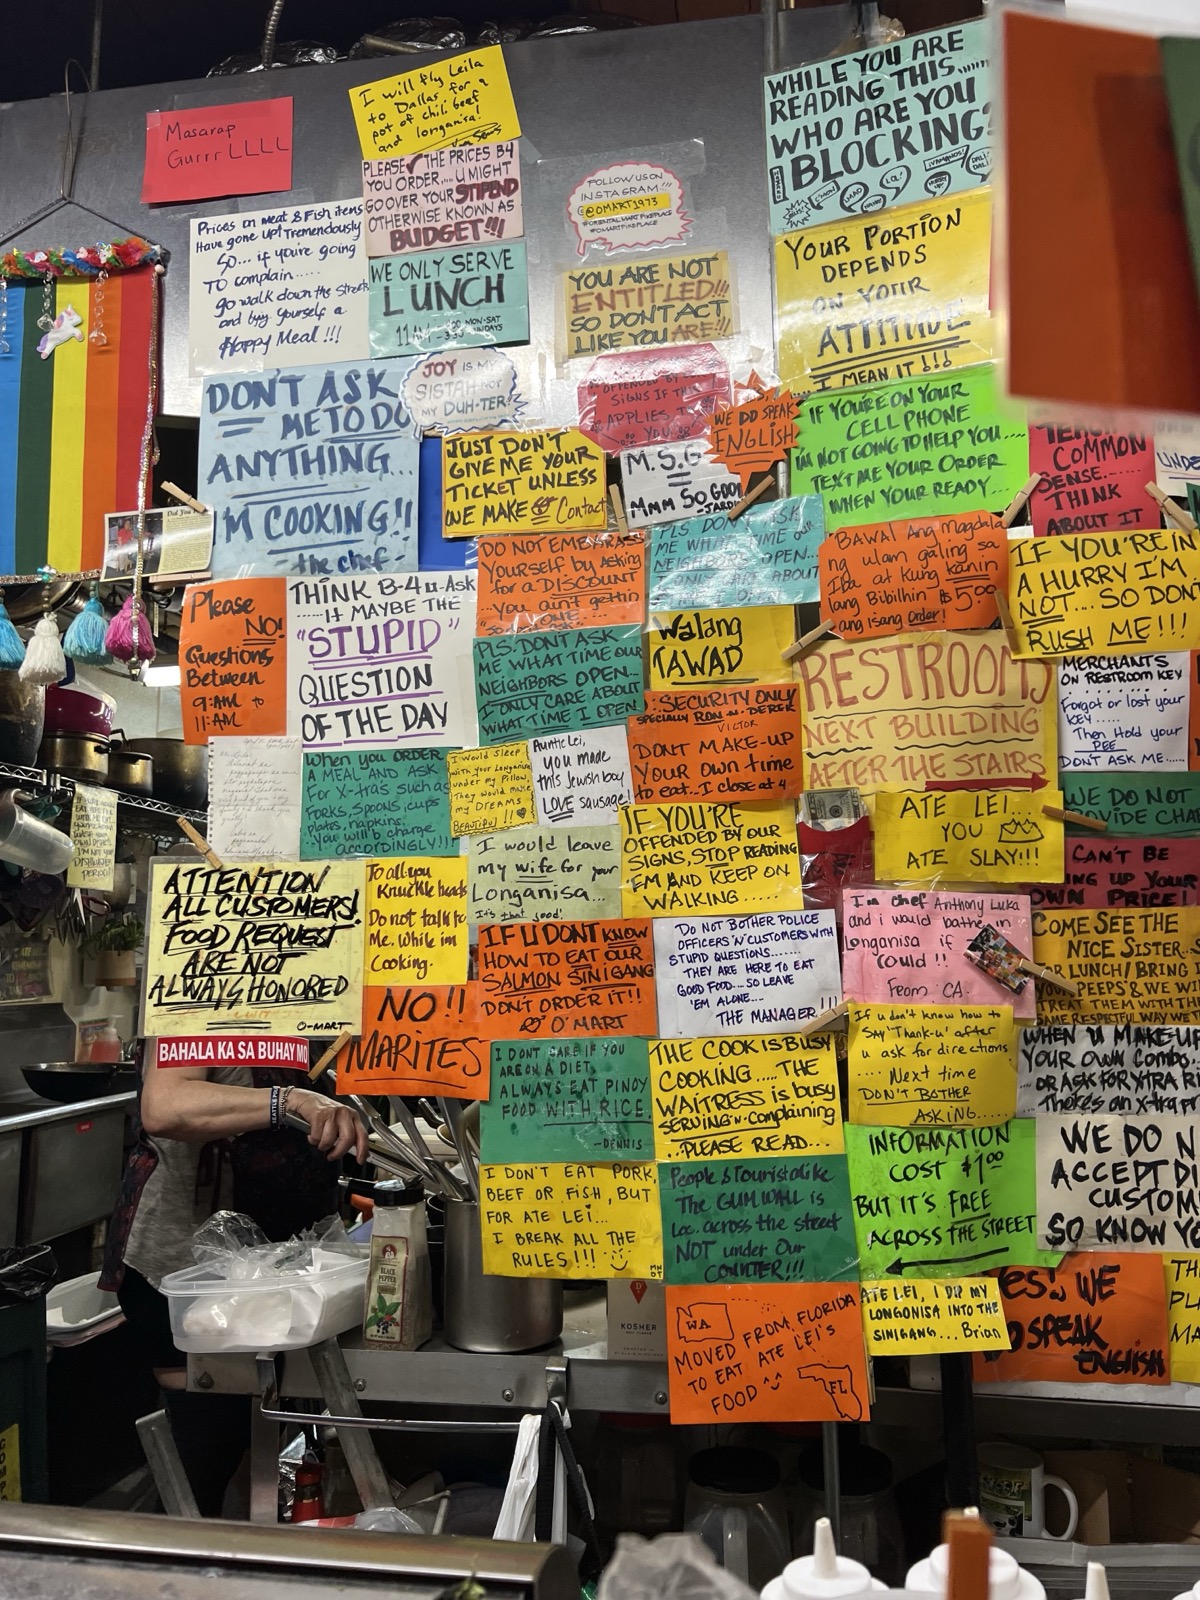 Masarap
Gurrr LLLL
I will fly Leila
to Dallas for a
pot of chili, beef
and longanisa!
PLEASE THE PRICES B4
YOU ORDER.... U MIGHT
GO OVER YOUR STIPEND
OTHERWISE KNOWN AS
BUDGET!!!
Prices on meat & Fish items
Have gone up! Tremendously
So... if you're going
TO complain.....
go walk down the street
and buy yourself a
Happy Meal!!!
WE ONLY SERVE
LUNCH
FOLLOW US ON
INSTAGRAM!!!
@OMART1973
#ORIENTALMARTPIKEPLACE
#OMARTPIKEPLACE
WHILE YOU ARE
READING THIS......
WHO ARE YOU
BLOCKING?
YOUR PORTION
DEPENDS
ON YOUR
ATTITUDE
I MEAN IT!!!
YOU ARE NOT
ENTITLED!!!
SO DON'T ACT
LIKE YOU ARE!!!
DON'T ASK
ME TO DO
ANYTHING...
I'M COOKING!!
-the chef-
JOY IS MY
SISTAH NOT
MY DUH-TER!
OFFENDED BY
SIGNS IF THE
APPLIES TO
YOU
WE DO SPEAK
ENGLISH
JUST DON'T
GIVE ME YOUR
TICKET UNLESS
WE MAKE Contact
M.S.G
Mmm So Good
IF YOU'RE ON YOUR
CELL PHONE
I'M NOT GOING TO HELP YOU....
TEXT ME YOUR ORDER
WHEN YOUR READY...
COMMON
SENSE....
THINK
ABOUT IT
Please
NO!
Questions
Between
9:AM to
11:AM
THINK B-4 U-Ask
...IT MAYBE THE
"STUPID"
QUESTION
OF THE DAY
DO NOT EMBARASS
YOURSELF by Asking
for a DISCOUNT
...You ain't gettin
PLS. DON'T ASK
ME WHAT TIME OUR
NEIGHBORS OPEN...
I ONLY CARE ABOUT
PLS. DON'T ASK
ME WHAT TIME OUR
NEIGHBORS OPEN...
I ONLY CARE ABOUT
WHAT TIME I OPEN
BAWAL Ang Magdala
ng ulam galing sa
Iba at Kung kanin
lang Bibilhin $5.00
ang Isang Order!
IF YOU'RE IN
A HURRY I'M
NOT... SO DON'T
RUSH ME!!!
Walang
TAWAD
SECURITY ONLY
SPECIALLY RON N. DEREK
VICTOR
DON'T MAKE-UP
YOUR OWN time
to eat...I close at 4
RESTROOM
NEXT BUILDING
AFTER THE STAIRS
MERCHANTS
ON RESTROOM KEY
Forgot or lost your
KEY.....
Then Hold your
PEE
DON'T ASK ME.....
When you ORDER
A MEAL AND ASK
For X-tras such as
Forks, spoons, cups
plates, napkins.
You will be charge
ACCORDINGLY!!!
I would sleep
with your Longanisa
under my Pillow,
They would make
my DREAMS
BEAUTIFUL!!
Auntie Lei,
you made
this Jewish boy
LOVE sausage!
I would leave
my wife for your
Longanisa...
It's that good!
IF YOU'RE
OFFENDED BY OUR
SIGNS, STOP READING
'EM AND KEEP ON
WALKING......
ATE LEI...
YOU
ATE SLAY!!!
WE DO NOT
CAN'T BE
OWN PRICE!
ATTENTION
ALL CUSTOMERS!
FOOD REQUEST
ARE NOT
ALWAYS HONORED
O-MART
To all you
Knuckle heads
Do not talk to
Me. While im
Cooking.
IF U DON'T KNOW
HOW TO EAT OUR
SALMON SINIGANG
DON'T ORDER IT!!
O'MART
DO NOT BOTHER POLICE
OFFICERS 'N' CUSTOMERS WITH
STUPID QUESTIONS.......
THEY ARE HERE TO EAT
GOOD FOOD... SO LEAVE
'EM ALONE....
THE MANAGER!!!
I'm chef Anthony Luka
and i would bathe in
longanisa if I
could!!
From CA.
COME SEE THE
NICE SISTER...
FOR LUNCH! BRING
YOUR PEEPS & WE WILL
TREAT THEM WITH THE
SAME RESPECTFUL WAY WE
NO!!
MARITES
BAHALA KA SA BUHAY MO
I DON'T CARE IF YOU
ARE ON A DIET.
ALWAYS EAT PINOY
FOOD WITH RICE.
-DENNIS
THE COOK IS BUSY
COOKING..... THE
WAITRESS is busy
SERVING 'n' complaining
...PLEASE READ...
If u don't know how to
SAY 'Thank-u' after
u ask for directions
.... Next time
DON'T BOTHER
ASKING.....
WHEN U MAKE-UP
YOUR OWN Combo
OR ASK FOR X-TRA RI
There's an x-tra pr
I DON'T EAT PORK,
BEEF OR FISH, BUT
FOR ATE LEI...
I BREAK ALL THE
RULES!!!
People & Tourist alike
The GUM WALL is
Loc. across the street
NOT under Our
COUNTER!!!
INFORMATION
COST $1.00
BUT IT'S FREE
ACROSS THE STREET
WE DO N
ACCEPT DI
CUSTOM
SO KNOW YO
BLACK
PEPPER
KOSHER
WA
MOVED FROM FLORIDA
TO EAT ATE LEI'S
FOOD
FL
ATE LEI, I DIP MY
LONGONISA INTO THE
SINIGANG... Brian
Yes! WE
DO SPEAK
ENGLISH